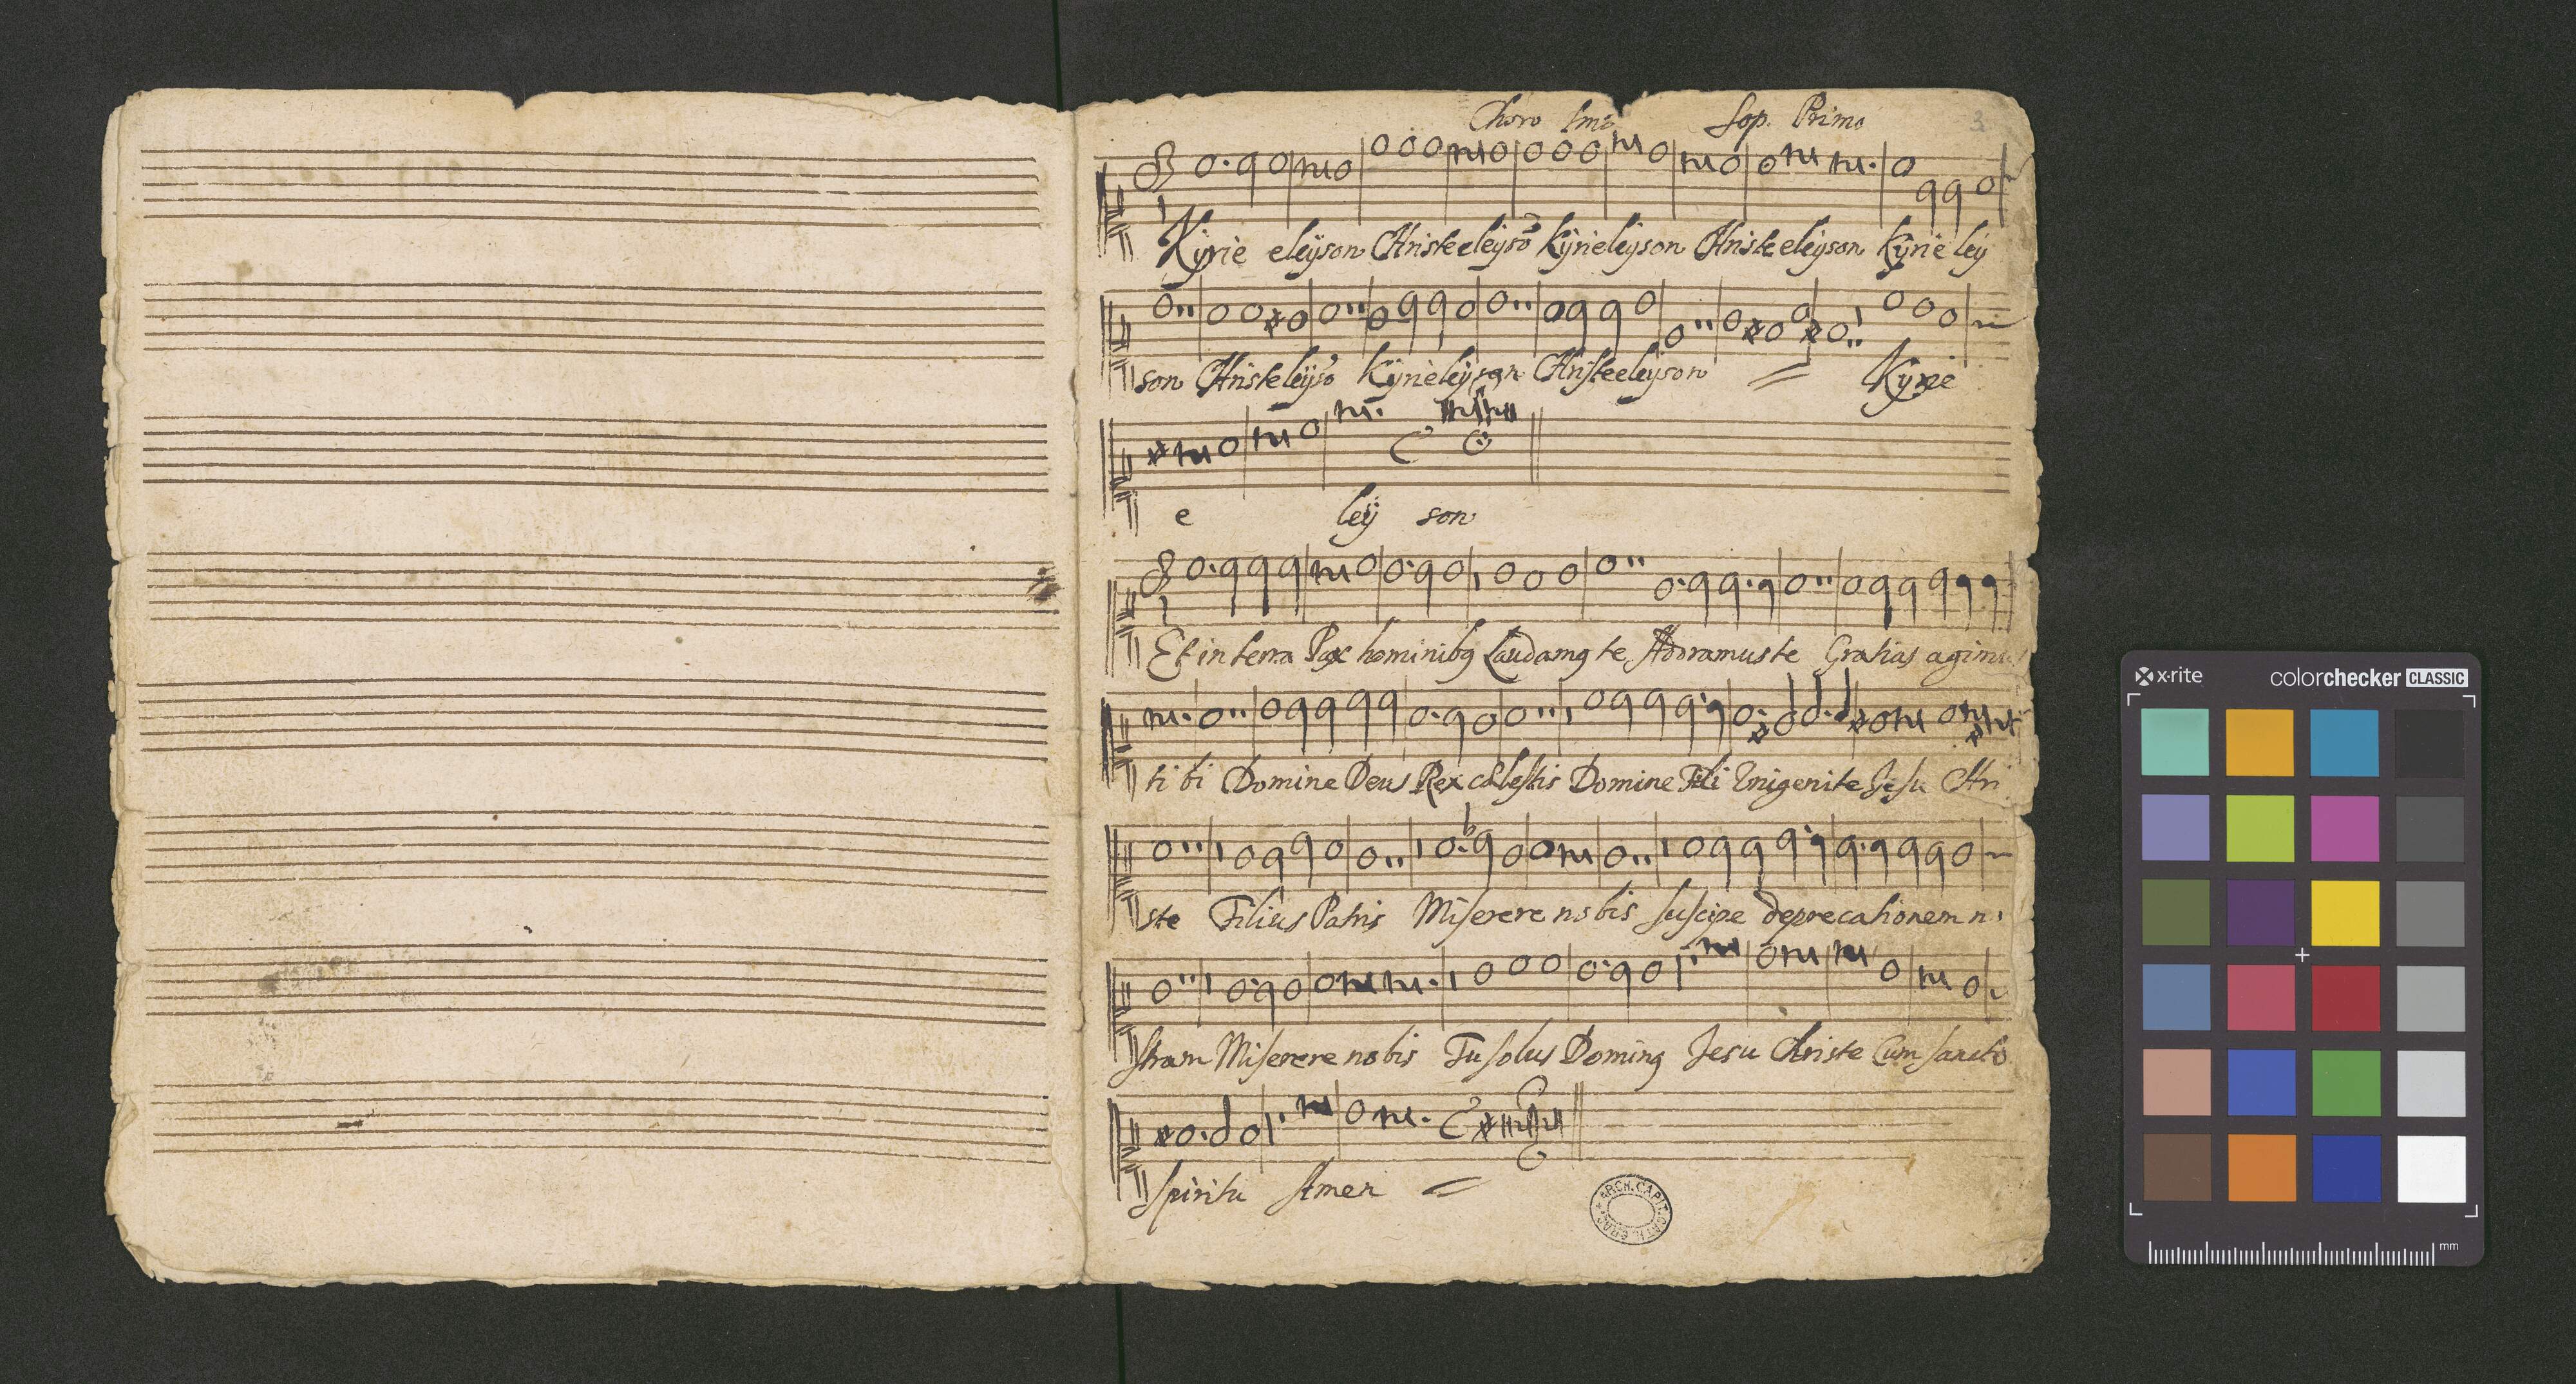 Choro 1mo Sop. Primo
3
Kyrie eleÿson Christe eleÿsõ Kÿrieleÿson Christe eleÿson Kÿrie leÿ
son Christe leÿsõ Kÿrieleÿson Christe eleÿson Kyrie
e leÿ son
Et in terra Pax hominibꝰ Laudamꝰ te Adoramus te Gratias agimus
ti bi Domine Deus Rex cælestis Domine Fili Vnigenite Jesu Chri
ste Filius Patris Miserere nobis suscipe deprecationem n
stram Miserere nobis Tu solus Dominꝰ Jesu Christe Cum sancto
spiritu Amen
ARCH. CAPIT. CATH.
x·rite
colorchecker CLASSIC
mm